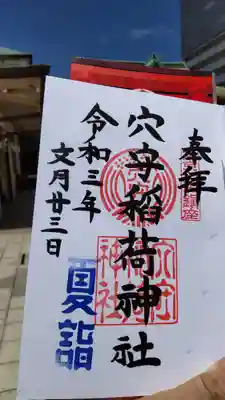 奉拝
穴守稲荷神社
令和三年
文月廿三日
夏詣